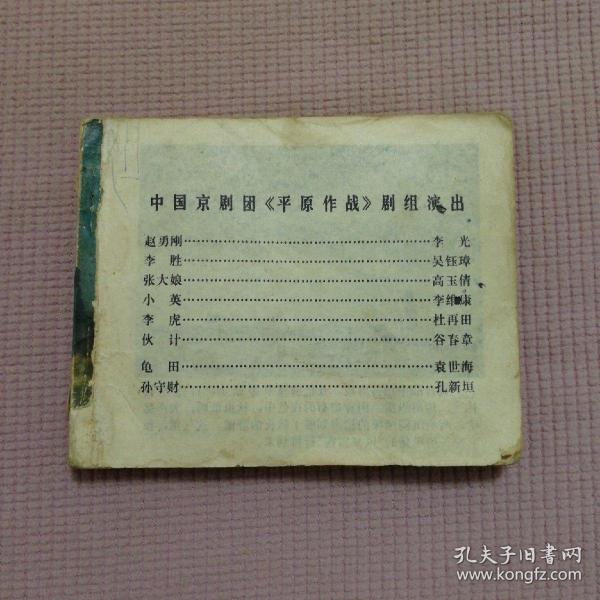 中国京剧团《平原作战》剧组演出
赵勇刚………李 光
李 胜………吴钰璋
张大娘………高玉倩
小 英………李维康
李 虎………杜再田
伙 计………谷春章
龟 田………袁世海
孙守财………孔新垣
孔夫子旧书网
www.kongfz.com